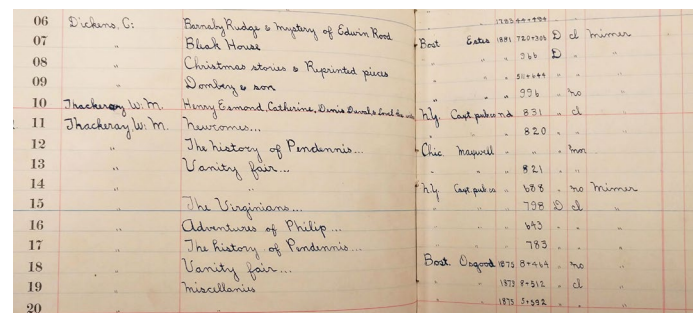 06 Dickens, C: Barnaby Rudge & Mystery of Edwin Rood
07 " Bleak House Bost Estes 1881 720+308 D cl Mimer
08 " Christmas stories & Reprinted pieces " " " 966 D " "
09 " Dombey & son " " " 511+644 " " "
10 Thackeray W: M. Henry Esmond, Catherine, Denis Duval & Lovel the " " " 996 " mo "
11 Thackeray W: M. Newcomes... N.Y. Caxt. pub co nd 831 " cl
12 " The history of Pendennis... " " " 820 " " "
13 " Vanity fair... Chic. Maxwell " " mor
14 " " " " " 821 " " "
15 " The Virginians... N.Y. Caxt. pub co " 688 " mo Mimer
16 " Adventures of Philip... " " " 798 D cl "
17 " The history of Pendennis... " " " 643 " " "
18 " Vanity fair... " " " 783 " " "
19 " Miscellanies Bost. Osgood 1873 8+464 " mo "
20 " " " 1873 8+512 " cl "
" " 1873 5+592 " " "